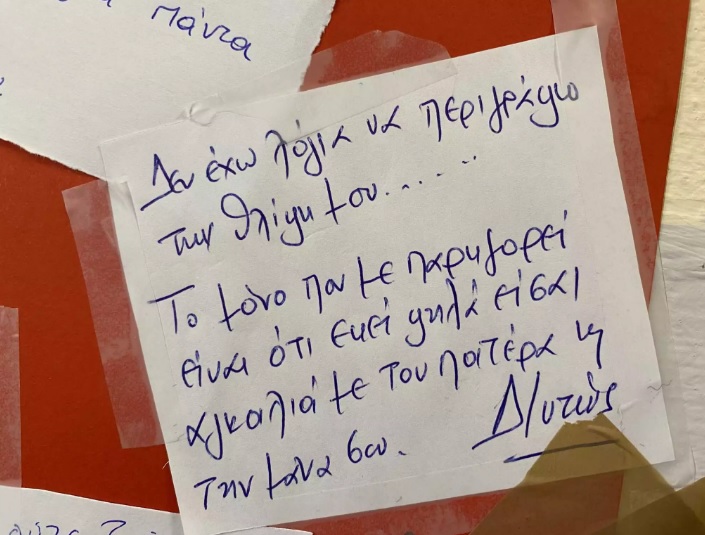 πάντα
Δεν έχω λόγια να περιγράψω
την θλίψη μου.......
Το μόνο που με παρηγορεί
είναι ότι εκεί ψηλά είσαι
αγκαλιά με τον πατέρα κ
την μάνα σου.